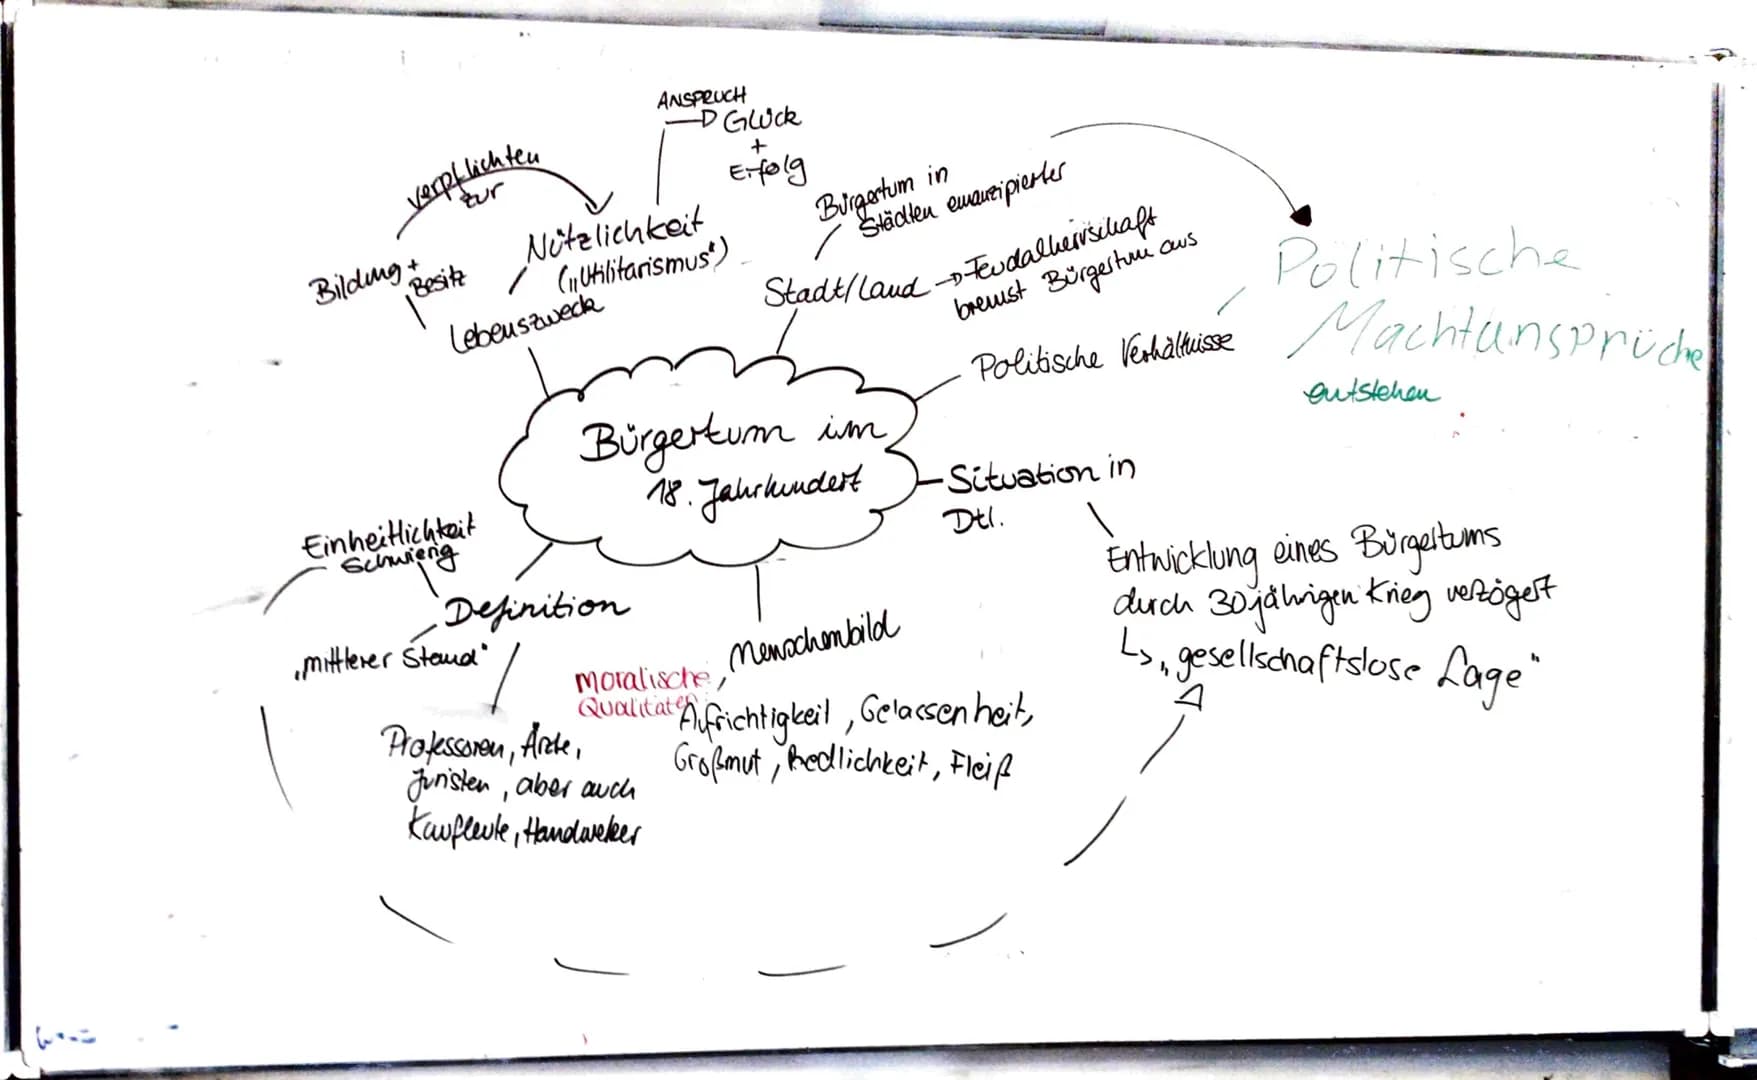 ANSPRUCH
Glück
+
Erfolg
verpflichten
zur
Nützlichkeit
("Utilitarismus")
Bildung +
Besitz
Lebenszweck
Bürgertum in
Städten emanzipierter
Stadt/Land
Feudalherrschaft
bremst Bürgertum aus
Politische
Machtansprüche
entstehen
Politische Verhältnisse
Bürgertum im
18. Jahrhundert
Situation in
Dtl.
Entwicklung eines Bürgertums
durch 30jährigen Krieg verzögert
"gesellschaftslose Lage"
Einheitlichkeit
schwierig
Definition
"mittlerer Stand"
Professoren, Ärzte,
Juristen, aber auch
Kaufleute, Handwerker
Menschenbild
Moralische
Qualitäten
Aufrichtigkeit, Gelassenheit,
Großmut, Redlichkeit, Fleiß